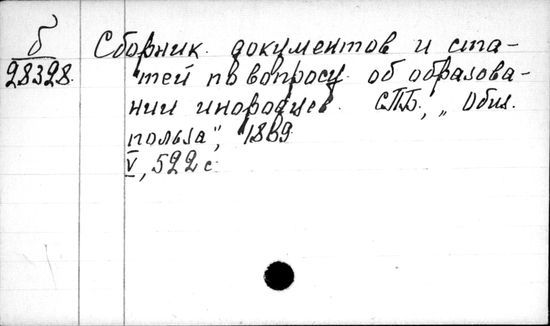 б
28328.
Сборник документов и ста-
тей по вопросу об образова-
нии инородцев. СПБ, „Общ.
польза", 1869
V, 522 с